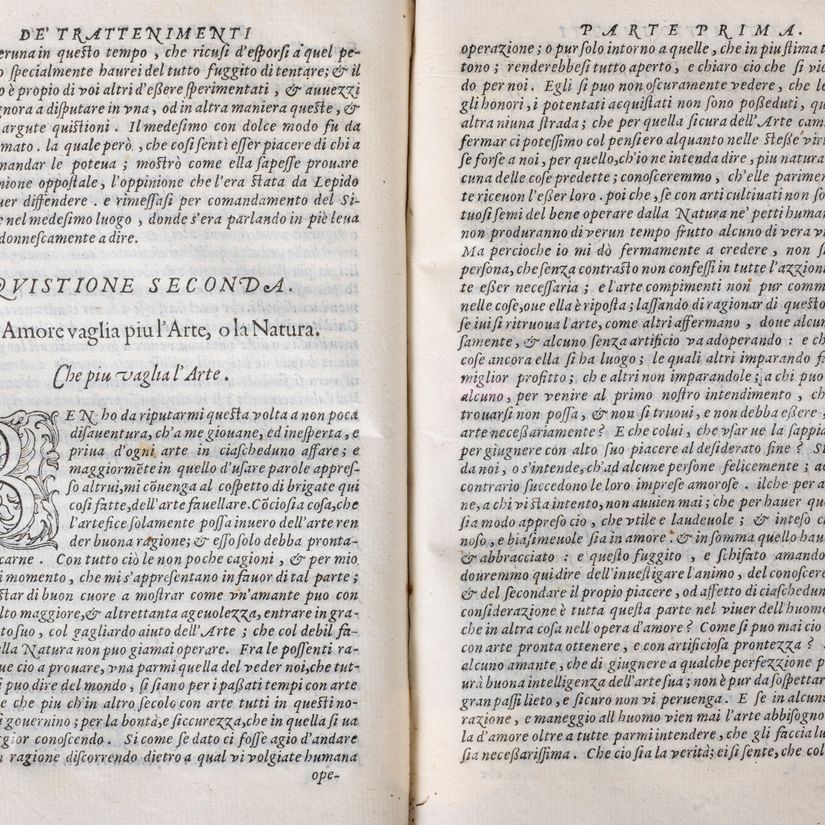 DE' TRATTENIMENTI
eruna in questo tempo, che ricusi d'esporsi a quel pe-
o specialmente haurei del tutto fuggito di tentare; & il
o è propio di voi altri d'eßere sperimentati, & auuezzi
gnora a disputare in vna, od in altra maniera queste, &
argute quistioni. Il medesimo con dolce modo fu da
mato. la quale però, che così sentì esser piacere di chi a
mandar le poteua; mostrò come ella sapesse prouare
nione oppostale, l'oppinione che l'era stata da Lepido
uer diffendere. e rimessasi per comandamento del Si-
e nel medesimo luogo, donde s'era parlando in piè leua
donnescamente a dire.
QVISTIONE SECONDA.
Amore vaglia piu l'Arte, o la Natura.
Che piu vaglia l'Arte.
BEN ho da riputarmi questa volta a non poca
disauentura, ch'a me giouane, ed inesperta, e
priua d'ogni arte in ciascheduno affare; e
maggiormēte in quello d'usare parole appres-
so altrui, mi cōuenga al cospetto di brigate qui
così fatte, dell'arte fauellare. Cōciosia cosa, che
l'artefice solamente possa inuero dell'arte ren
der buona ragione; & esso solo debba pronta-
carne. Con tutto ciò le non poche cagioni, & per mio
i momento, che mi s'appresentano in fauor di tal parte;
star di buon cuore a mostrar come vn'amante puo con
lto maggiore, & altrettanta ageuolezza, entrare in gra-
to suo, col gagliardo aiuto dell'Arte; che col debil fa-
ella Natura non puo giamai operare. Fra le possenti ra-
ue cio a prouare, vna parmi quella del veder noi, che tut-
i puo dire del mondo, si siano per i paßati tempi con arte
e che piu ch'in altro secolo con arte tutti in questi no-
i gouernino; per la bontà, e siccurezza, che in quella si ua
rgior conoscendo. Si come se dato ci fosse agio d'andare
n ragione discorrendo dietro a qual vi volgiate humana
ope-
PARTE PRIMA.
operazione; o pur solo intorno a quelle, che in piu stima t
tono; renderebbesi tutto aperto, e chiaro cio che si vie
do per noi. Egli si puo non oscuramente vedere, che le
gli honori, i potentati acquistati non sono poßeduti, qu
altra niuna strada; che per quella sicura dell'Arte cam
fermar ci potessimo col pensiero alquanto nelle steße virt
se forse a noi, per quello, ch'io ne intenda dire, piu natura
cuna delle cose predette; conosceremmo, ch'elle parimen
te riceuon l'eßer loro. poi che, se con arti cultiuati non so
tuosi semi del bene operare dalla Natura ne' petti human
non produranno di verun tempo frutto alcuno di vera vi
Ma percioche io mi dò fermamente a credere, non si
persona, che senza contrasto non confessi in tutte l'azzioni
te eßer necessaria; e l'arte compimenti non pur comm
nelle cose, oue ella è riposta; lassando di ragionar di questo
se iui si ritruoua l'arte, come altri affermano, doue alcun
samente, & alcuno senza artificio va adoperando: e ch
cose ancora ella si ha luogo; le quali altri imparando fa
miglior profitto; che altri non imparandole; a chi puo
alcuno, per venire al primo nostro intendimento, ch
trouarsi non possa, & non si truoui, e non debba eßere,
arte neceßariamente? E che colui, che vsar ue la sappia
per giugnere con alto suo piacere al desiderato fine? Si
da noi, o s'intende, ch'ad alcune persone felicemente; ad
contrario succedono le loro imprese amorose. ilche per a
ne, a chi vi sta intento, non auuien mai; che per hauer que
sia modo appreso cio, che vtile e laudeuole; & inteso ci
noso, e biasimeuole sia in amore: & in somma quello hau
& abbracciato: e questo fuggito, e schifato amando
douremmo qui dire dell'inuestigare l'animo, del conoscere
& del secondare il propio piacere, od affetto di ciaschedun
considerazione è tutta questa parte nel viuer dell'huome
che in altra cosa nell'opera d'amore? Come si puo mai cio
con arte pronta ottenere, e con artificiosa prontezza?
alcuno amante, che di giugnere a qualche perfezzione p
urà buona intelligenza dell'arte sua; non è pur da sospettar
gran passi lieto, e sicuro non vi peruenga. E se in alcun
razione, e maneggio all huomo vien mai l'arte abbisogn
la d'amore oltre a tutte parmi intendere, che gli faccia lu
sia neceßarissima. Che cio sia la verità; ei si sente, che col